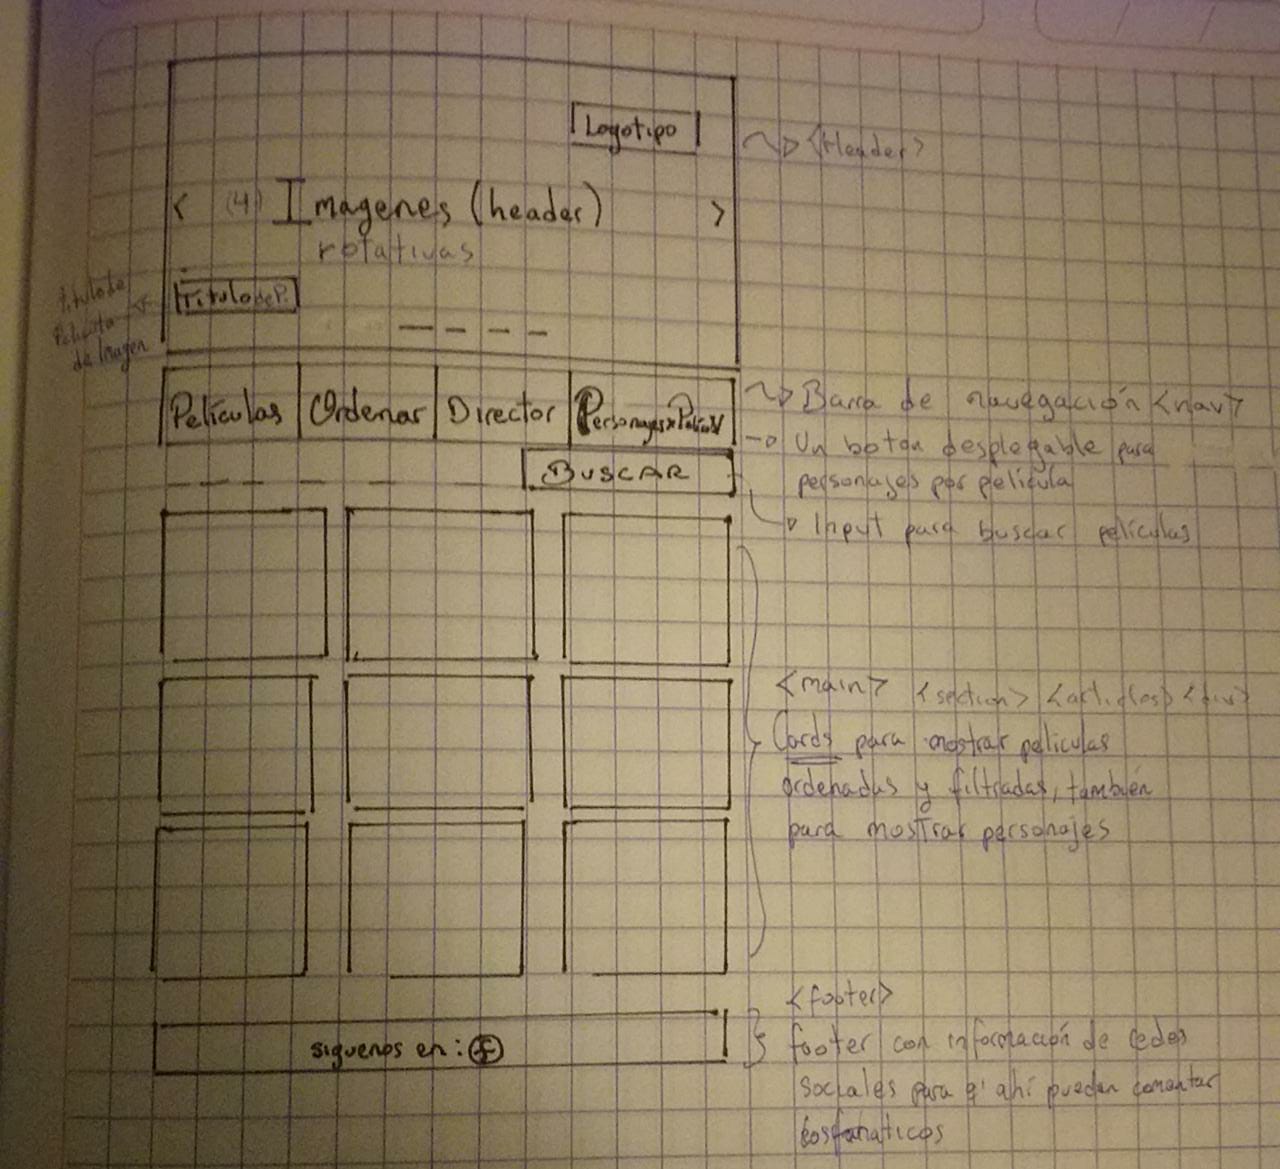 Logotipo
<Header>
< (4) Imagenes (header) >
rotativas
Titulo de P.
titulo de
Pelicula
de Imagen
Películas Ordenar Director Personajes x Películ
Barra de navegación <nav>
Un boton desplegable para
personajes por película
BUSCAR
Input para buscar películas
<main> <section> <articles> <div>
Cards para mostrar películas
ordenadas y filtradas, también
para mostrar personajes
<footer>
siguenos en: f
footer con información de redes
sociales para q' ahí puedan comentar
los fanaticos